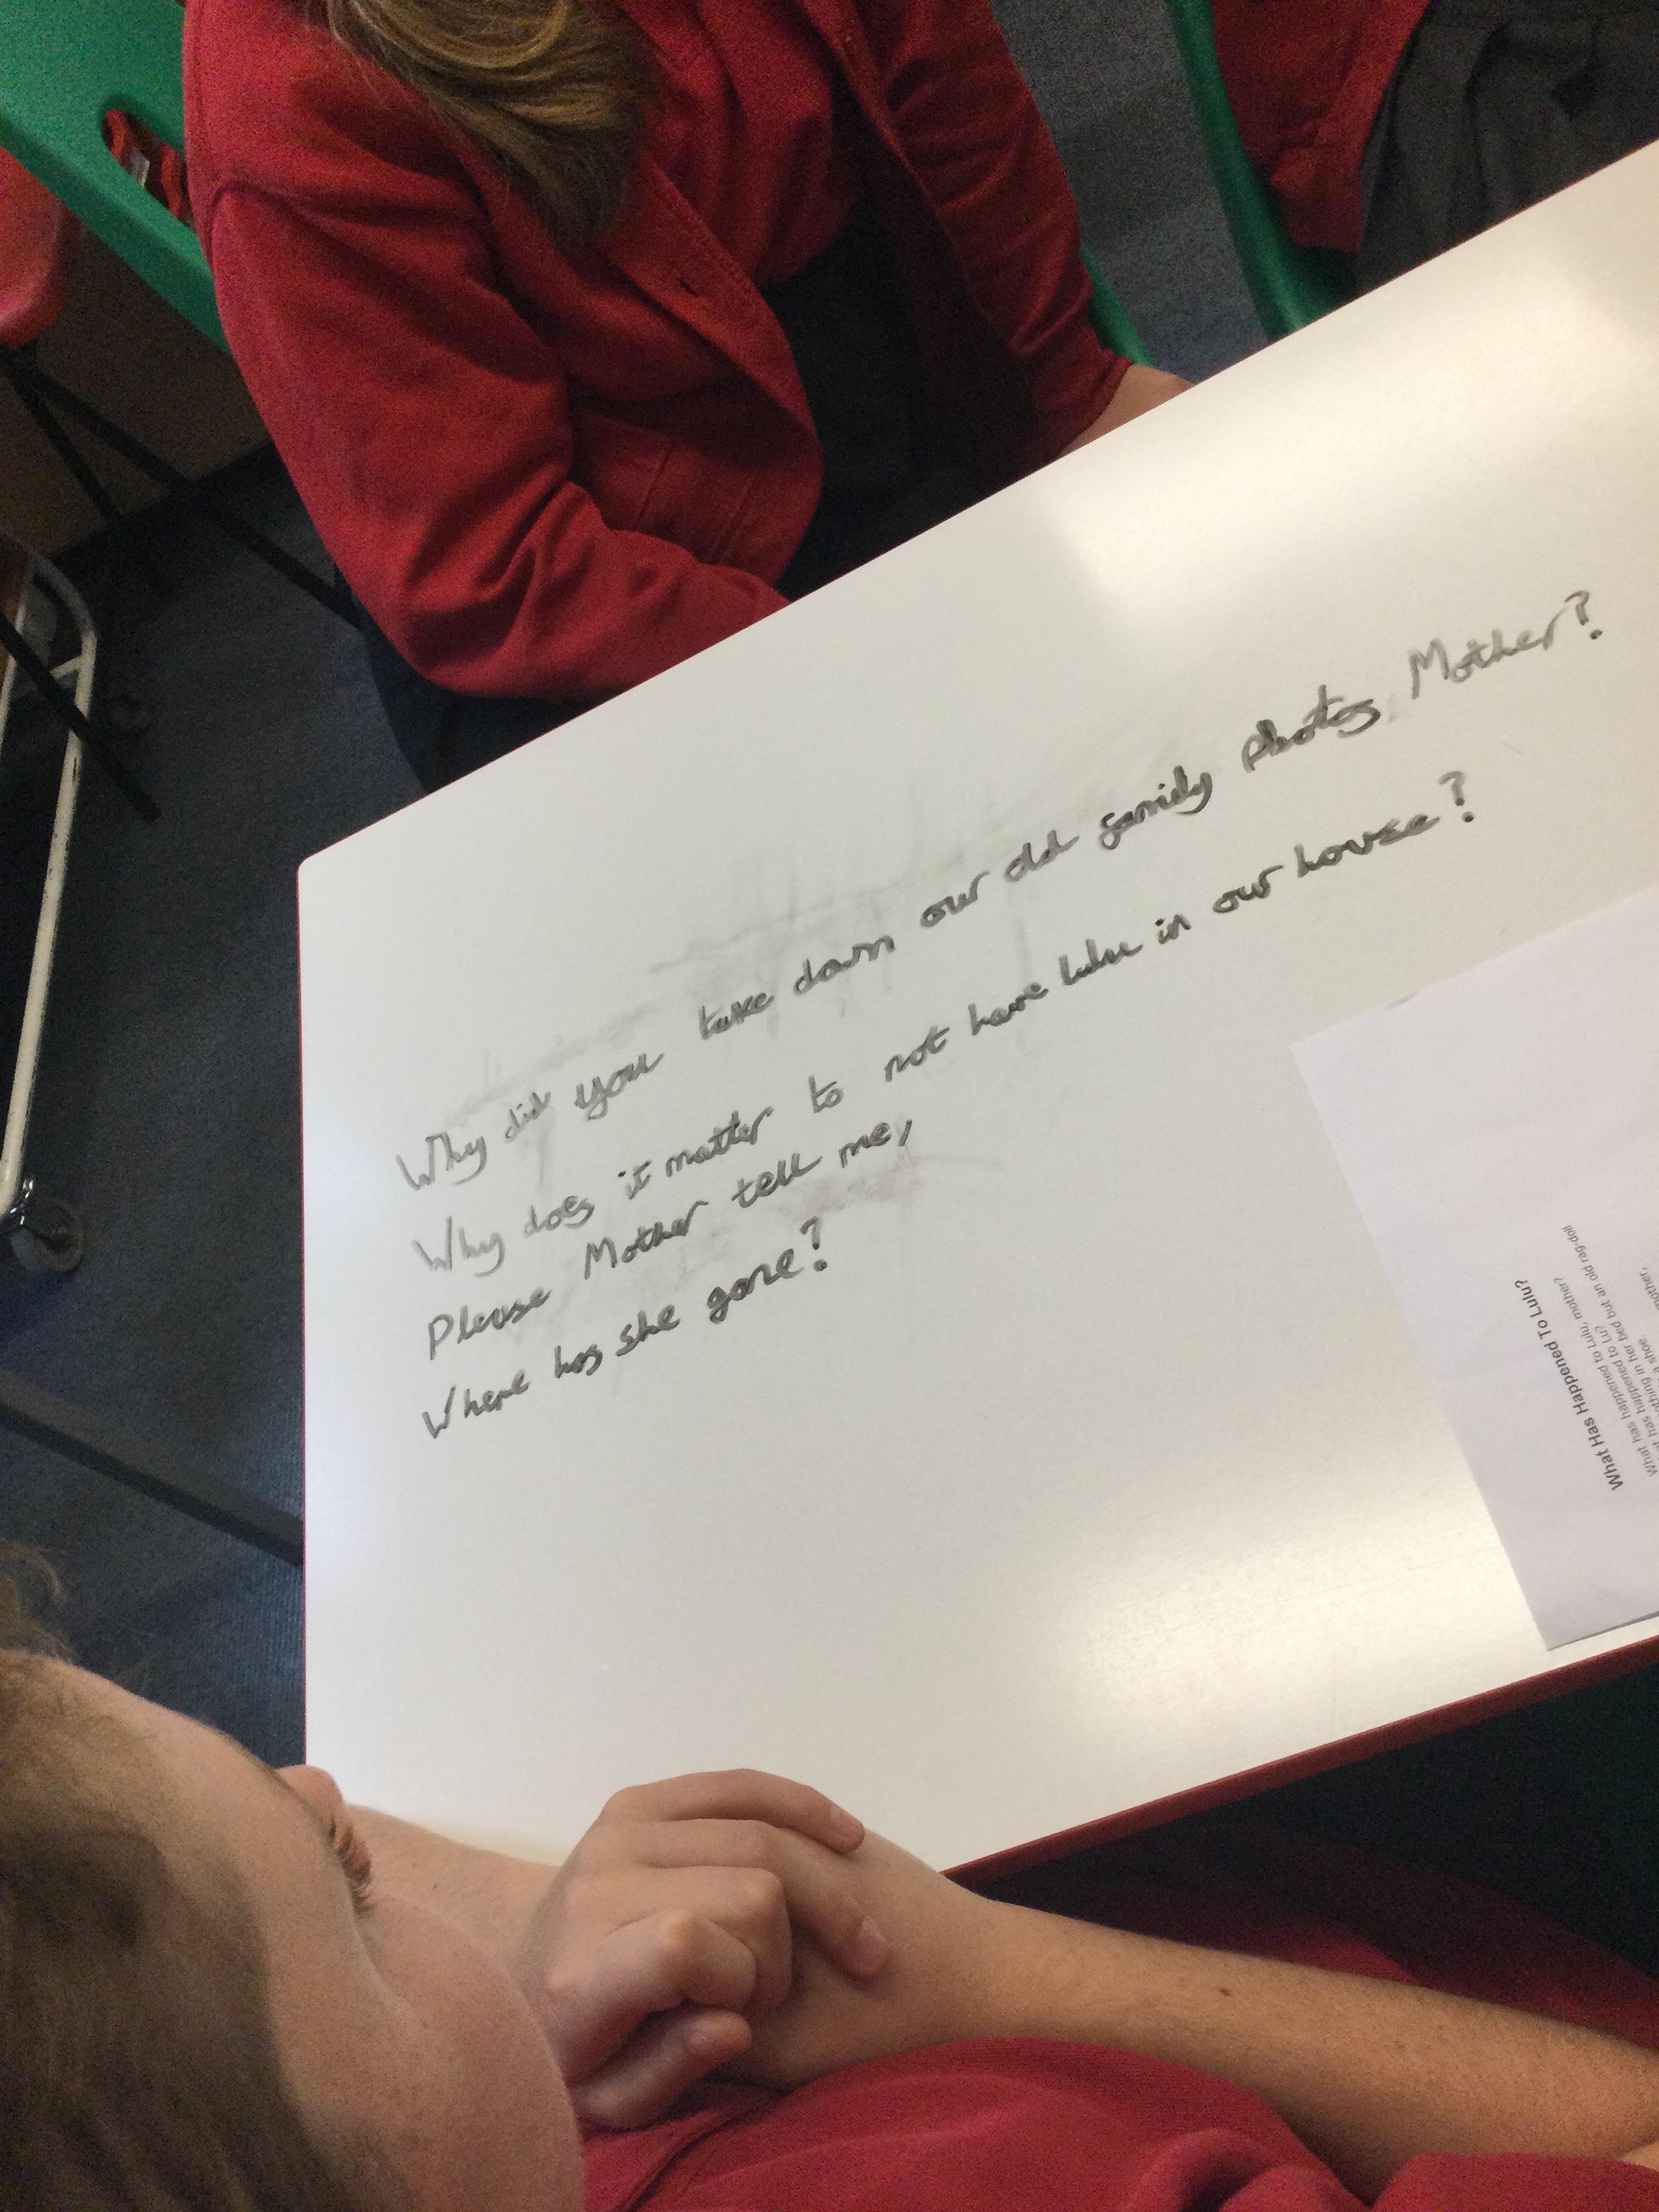 Why did you take down our old family photos Mother?
Why does it matter to not have lulu in our house?
Please Mother tell me,
Where has she gone?
What Has Happened To Lulu?
What has happened to Lulu, mother?
What has happened to Lu?
nothing in her bed but an old rag-doll
a shoe.
mother,